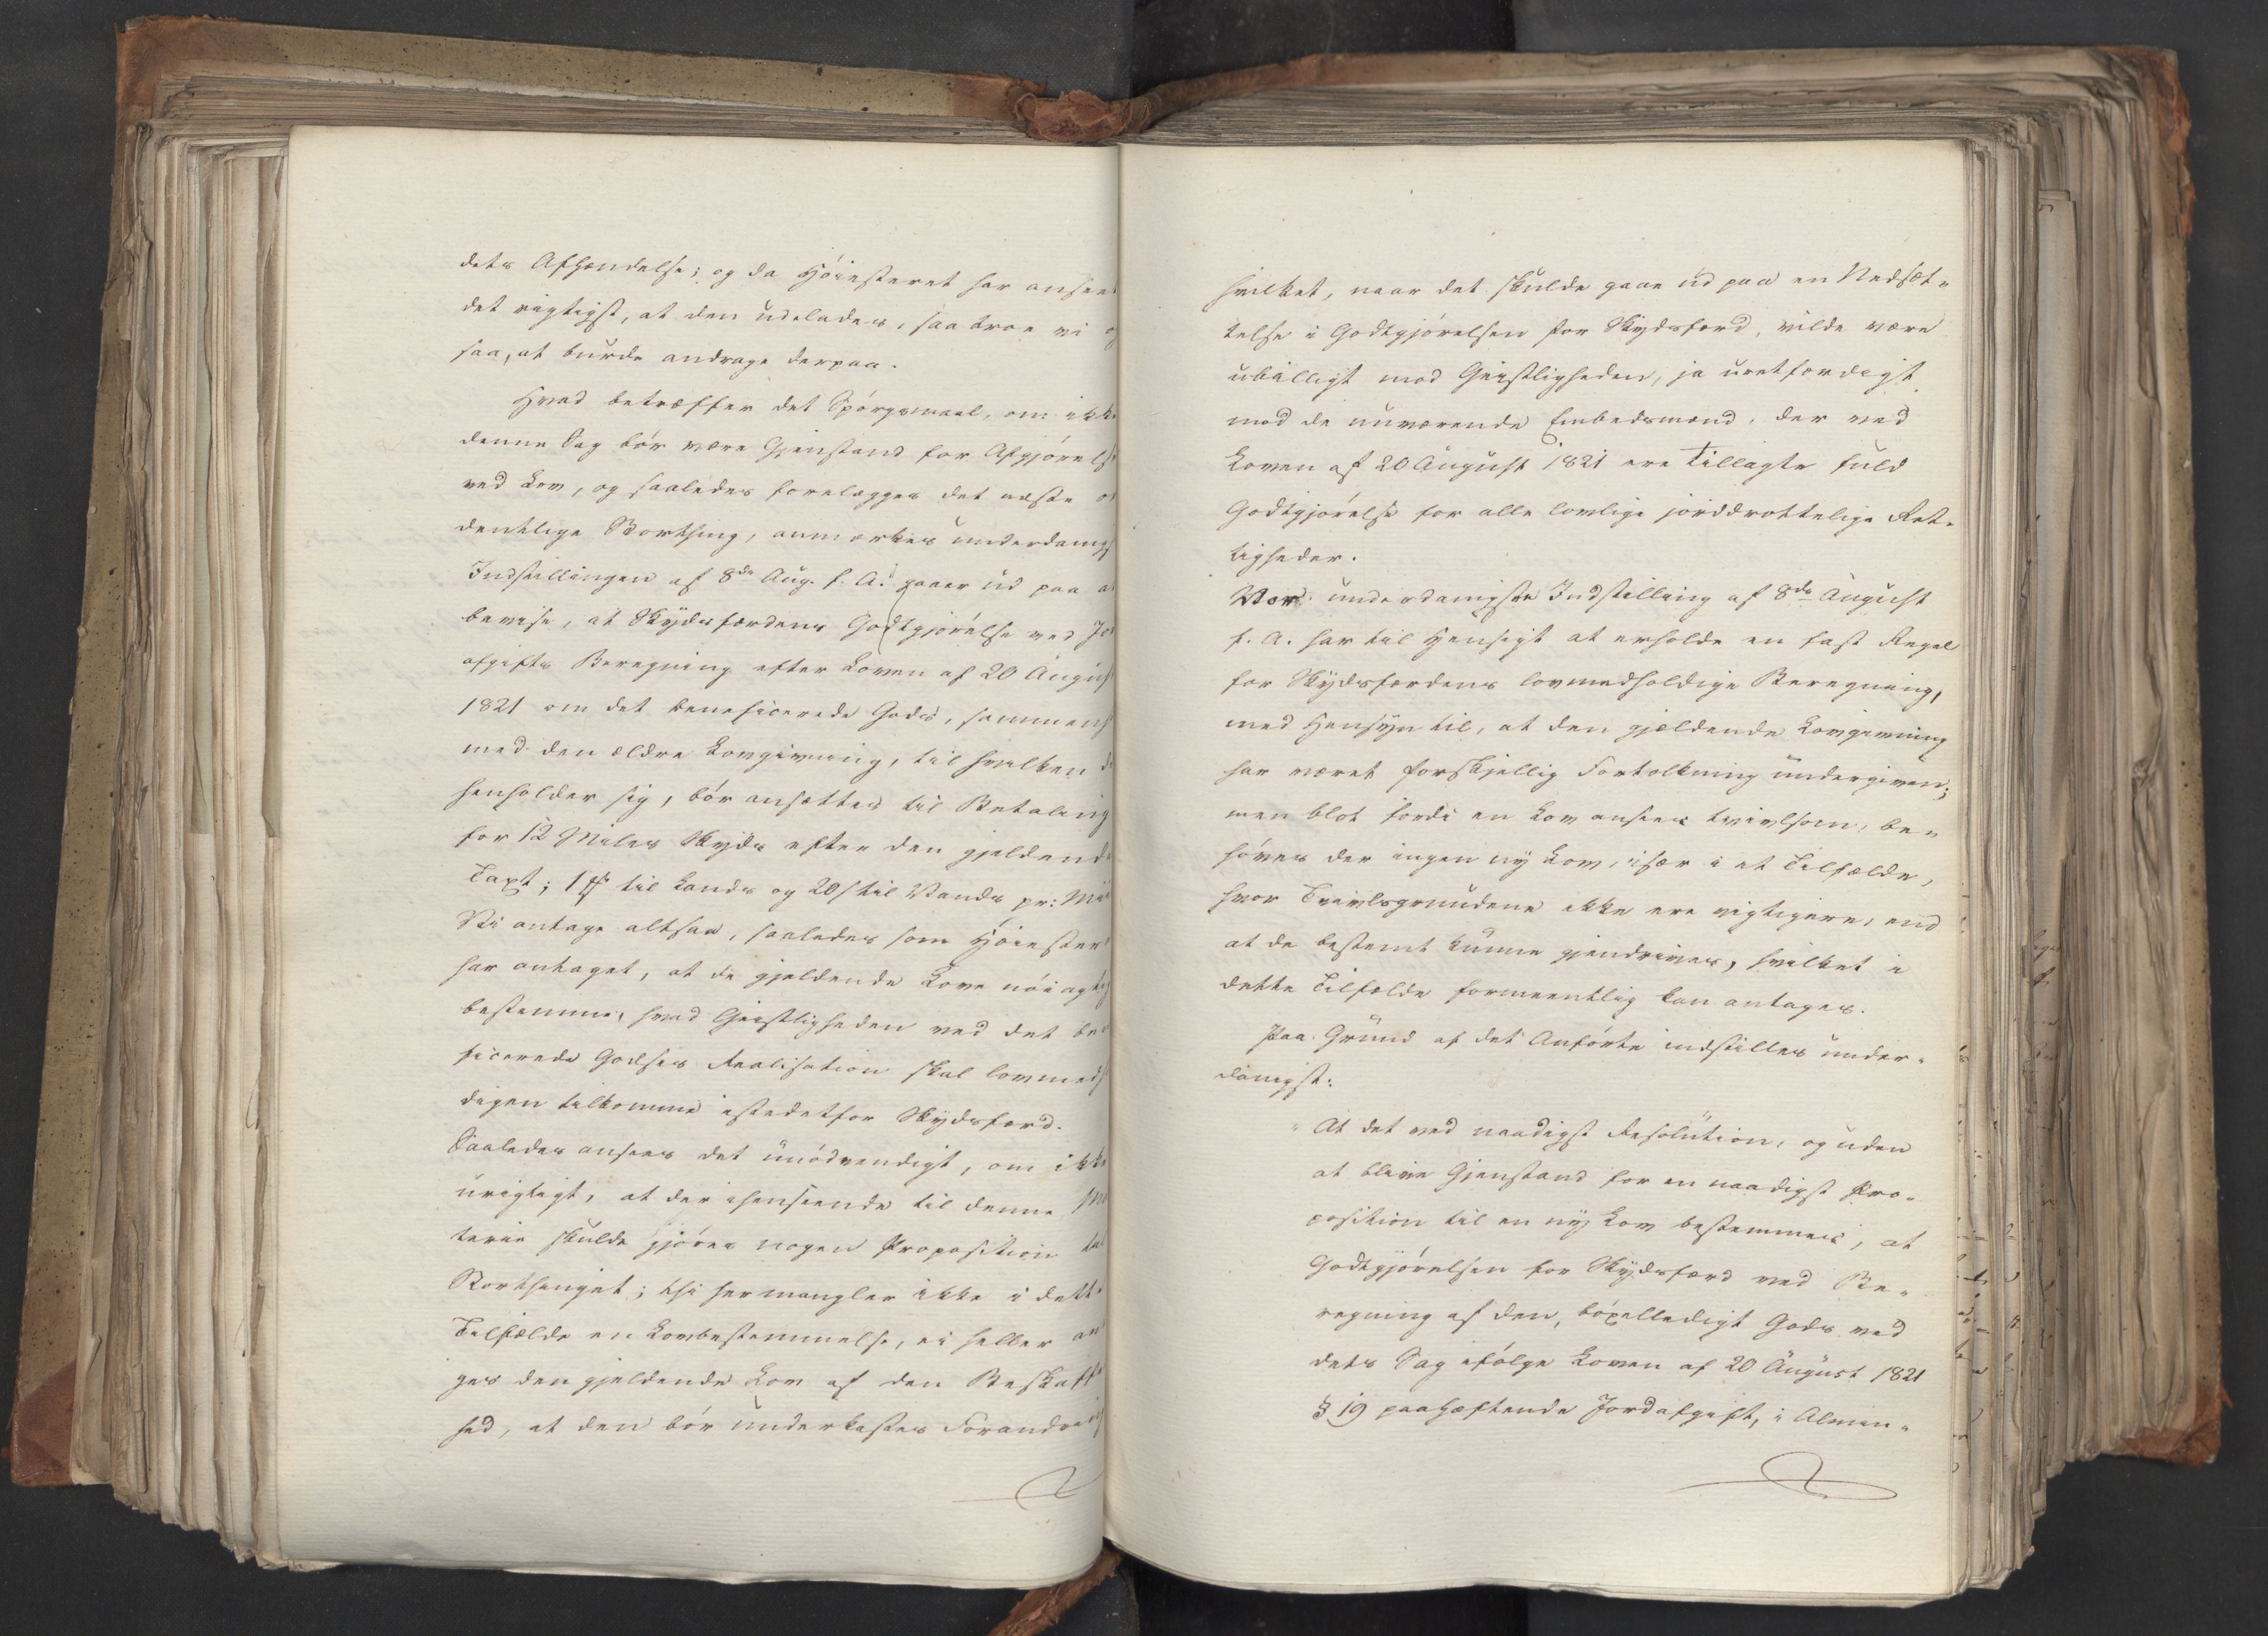 dets Afhændelse; og da Höiesteret har anseet
det rigtigst, at den udelades, saa troe vi og
saa, at burde andrage derpaa.
Hvad betræffer det Spörgsmaal, om ikke
denne Sag bör være Gjenstand for Afgjörelse
ved Lov, og saaledes forelægges det næste or
dentlige Storthing, anmærkes underdanigst
Indstillingen af 8de Aug. f. A. gaaer ud paa at
bevise, at Skydsfærdens Godtgjörelse ved Jord
afgifts Beregning efter Loven af 20 August
1821 om det beneficerede Gods, sammenh
med den ældre Lovgivning, til hvilken de
henholder sig, bör ansættes til Betaling
for 12 Miles Skyds efter den gjeldende
Taxt; 1 ß til Lands og 20 ß til Vands pr: Miil
Vi antage altsaa, saaledes som Höiesteret
har antaget, at de gjeldende Love nöiagtig
bestemme, hvad Geistligheden ved det bene
ficerede Godses Realisation skal lovmedhol
digen tilkomme istedetfor Skydsfærd.
Saaledes ansees det unödvendigt, om ikke
urigtigt, at der ihenseende til denne Ma
terie skulde gjöres nogen Proposition til
Storthinget; thi her mangler ikke i dette
Tilfælde en Lovbestemmelse, ei heller an
sees den gjeldende Lov af den Beskaffen
hed, at den bör underkastes Forandring
hvilket, naar det skulde gaae ud paa en Nedsæt-
telse i Godtgjörelsen for Skydsfærd, vilde være
ubilligt mod Geistligheden, ja uretfærdigt
mod de nuværende Embedsmænd, der ved
Loven af 20 August 1821 ere tillagte fuld
Godtgjörelse for alle lovlige jorddrottelige Ret-
tigheder.
Vor underdanigste Indstilling af 8de August
f. A. har til Hensigt at erholde en fast Regel
for Skydsfærdens lovmedholdige Beregning,
med Hensyn til, at den gjældende Lovgivning
har været forskjellig Fortolkning undergiven;
men blot fordi en Lov ansees tvivlsom, be-
höves der ingen ny Lov, især i et Tilfælde,
hvor Tvivlsgrundene ikke ere vigtigere, end
at de bestemt kunne gjendrives, hvilket i
dette Tilfælde formeentlig kan antages.
Paa Grund af det Anförte indstilles under-
danigst:
"At det ved naadigst Resolution, og uden
at blive Gjenstand for en naadigst Pro-
position til en ny Lov bestemmes, at
Godtgjörelsen for Skydsfærd ved Be-
regning af den, böxelledigt Gods ved
dets Sag ifölge Loven af 20 August 1821
§ 19 paahæftende Jordafgift, i Almin-